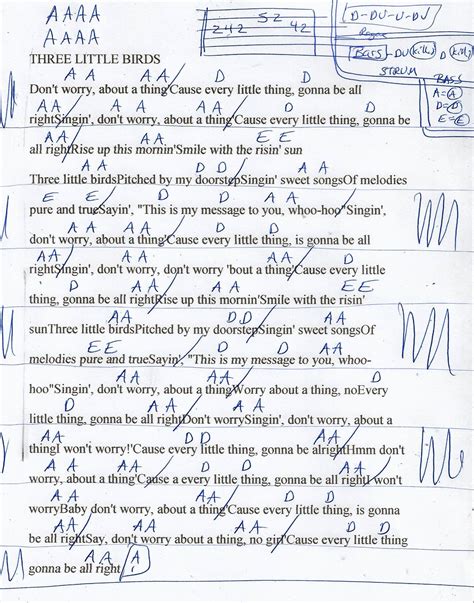 A A A A
A A A A
52
242 42
D - DU - U - DU
Reggae
Bars - DU (Kill) D (Kill)
STRUM
BASS
A = A
D = D
E = E
THREE LITTLE BIRDS
A A A A D D
Don't worry, about a thing'Cause every little thing, gonna be all
A A A A A A D D
rightSingin', don't worry, about a thing'Cause every little thing, gonna be
A A A A E E
all rightRise up this mornin'Smile with the risin' sun
A A D D A A
Three little birdsPitched by my doorstepSingin' sweet songsOf melodies
E E D D A A
pure and trueSayin', "This is my message to you, whoo-hoo"Singin',
A A A A D D
don't worry, about a thing'Cause every little thing, is gonna be all
A A A A A A D
rightSingin', don't worry, don't worry 'bout a thing'Cause every little
D A A A A E E
thing, gonna be all rightRise up this mornin'Smile with the risin'
A A D D A A
sunThree little birdsPitched by my doorstepSingin' sweet songsOf
E E D D
melodies pure and trueSayin', "This is my message to you, whoo-
A A A A D
hoo"Singin', don't worry, about a thingWorry about a thing, noEvery
D A A A A
little thing, gonna be all rightDon't worrySingin', don't worry, about a
A A D D A A
thingI won't worry!'Cause every little thing, gonna be alrightHmm don't
A A D D A A
worry, about a thing'Cause a every little thing, gonna be all rightI won't
A A A A D D
worryBaby don't worry, about a thing'Cause every little thing, is gonna
A A A A A A D D
be all rightSay, don't worry, about a thing, no girl'Cause every little thing
A A A
gonna be all right